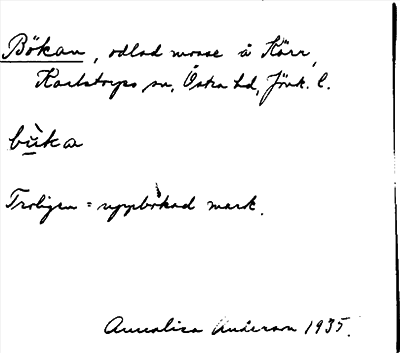 Bökan, odlad mosse å Kärr,
Karlstorps sn, Östra hd, Jönk. l.
bùka
Troligen = uppbökad mark.
Annalisa Anderson 1935.